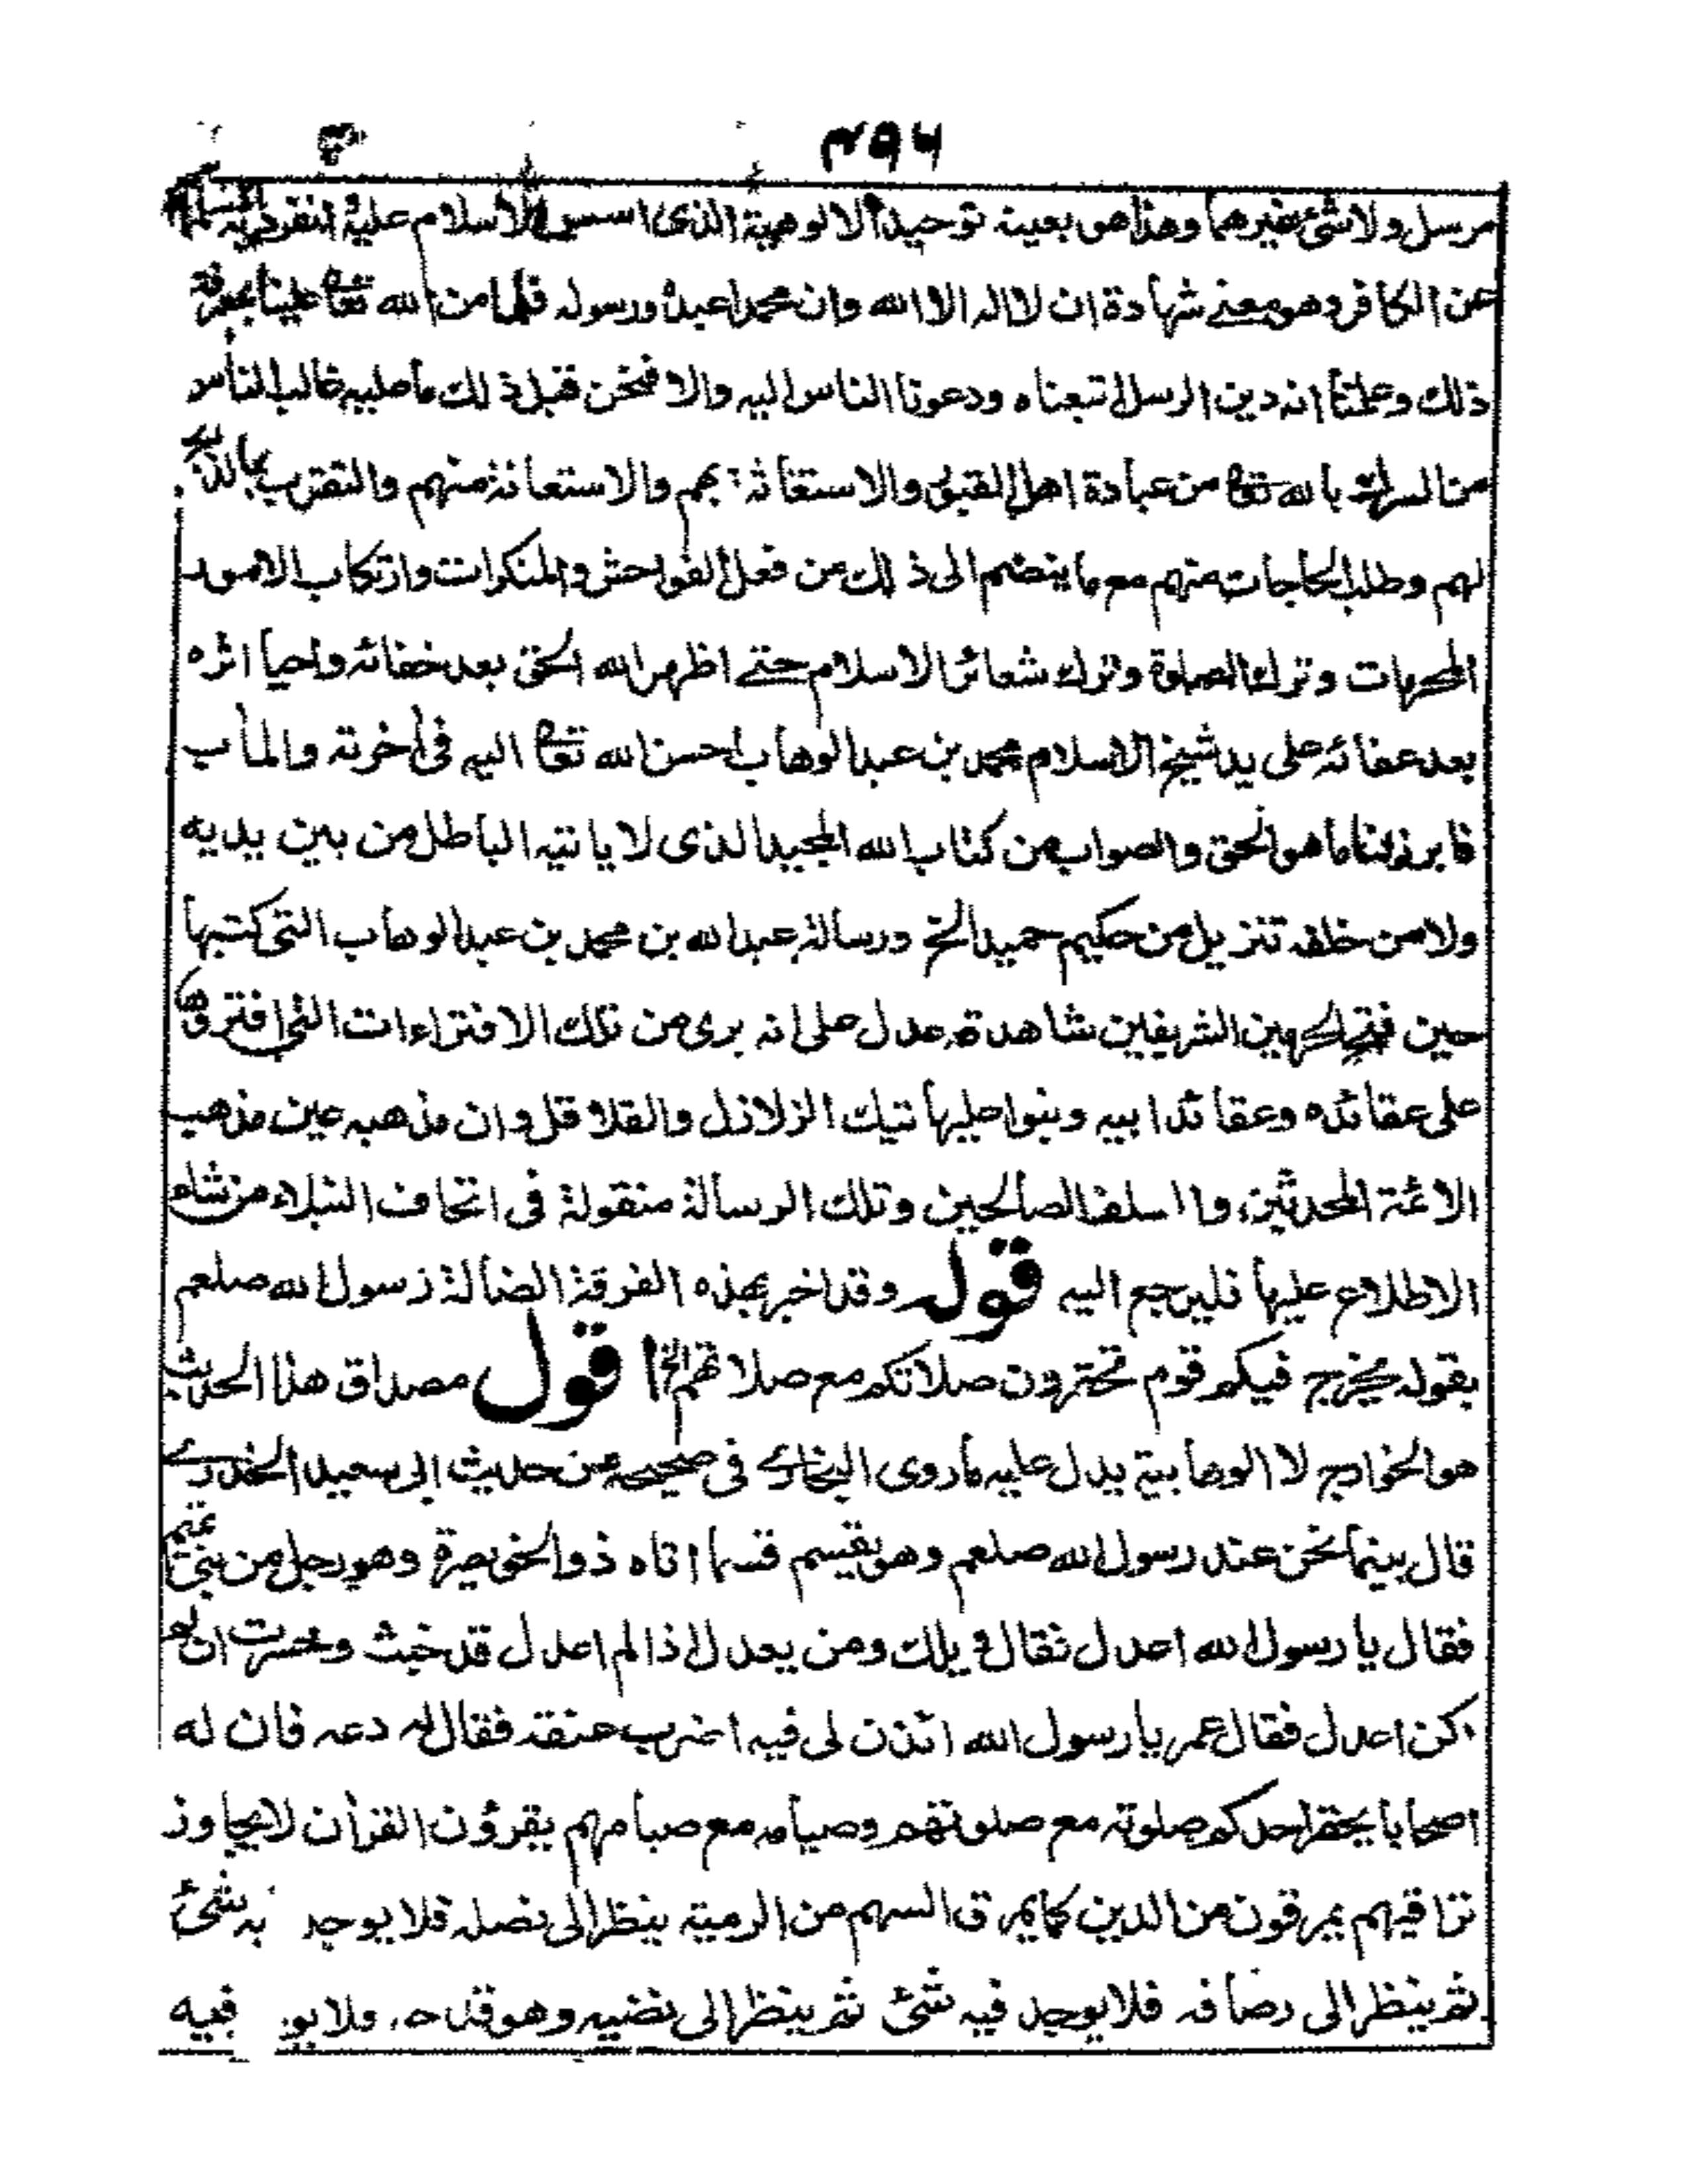 ۴۹۶
مرسل ولا شئ غيرهما وهذا هو بعينه توحيد الالوهية الذی اسس الاسلام عليه انفرد به المسلم
عن الكافر وهو معنے شهادة ان لا اله الا الله وان محمدا عبده ورسوله فلما من الله تعا علينا بمعرفة
ذلك وعلمنا انه دين الرسل اتبعناه ودعونا الناس اليه والا فنحن قبل ذلك ما عليه غالب الناس
من الشرك بالله تعا من عبادة اهل القبور والاستغاثة بهم والاستعانة منهم والتقرب بالذبح
لهم وطلب الحاجات منهم مع ما ينضم الى ذلك من فعل الفواحش والمنكرات وارتكاب الامور
المحرمات وترك الصلوة وترك شعائر الاسلام حتے اظهر الله الحق بعد خفائه واحيا اثره
بعد عفائه على يد شيخ الاسلام محمد بن عبد الوهاب احسن الله تعا اليه فی أخرته والمأب
فابرز لنا ما هو الحق والصواب من كتاب الله المجيد الذی لا ياتيه الباطل من بين يديه
ولا من خلفه تنزيل من حكيم حميد الخ ورسالة عبد الله بن محمد بن عبد الوهاب التی كتبها
حين فتح الحرمين الشريفين شاهدة عدل على انه بری من تلك الافتراءات التی افتروها
على عقائده وعقائد ابيه وبنوا عليها تيك الزلازل والقلاقل وان مذهبه عين مذهب
الائمة المحدثين والسلف الصالحين وتلك الرسالة منقولة فی اتحاف النبلاء من شاء
الاطلاع عليها فليرجع اليه قوله وقد اخبر بهذه الفرقة الضالة رسول الله صلعم
بقوله يخرج فيكم قوم تحقرون صلاتكم مع صلاتهم الخ اقول مصداق هذا الحديث
هو الخوارج لا الوهابية يدل عليه ما روى البخاری فی صحيحه عن حديث ابی سعيد الخدری
قال بينما نحن عند رسول الله صلعم وهو يقسم قسما اتاه ذو الخويصرة وهو رجل من بنی تميم
فقال يا رسول الله اعدل فقال ويلك ومن يعدل اذا لم اعدل قد خبت وخسرت ان لم
اكن اعدل فقال عمر يا رسول الله ائذن لی فيه اضرب عنقه فقال له دعه فان له
اصحابا يحقر احدكم صلوته مع صلوتهم وصيامه مع صيامهم يقرؤن القرأن لا يجاوز
تراقيهم يمرقون من الدين كما يمرق السهم من الرمية ينظر الى نصله فلا يوجد به شئ
ثم ينظر الى رصافه فلا يوجد فيه شئ ثم ينظر الى نضيه وهو قدحه فلا يو فيه